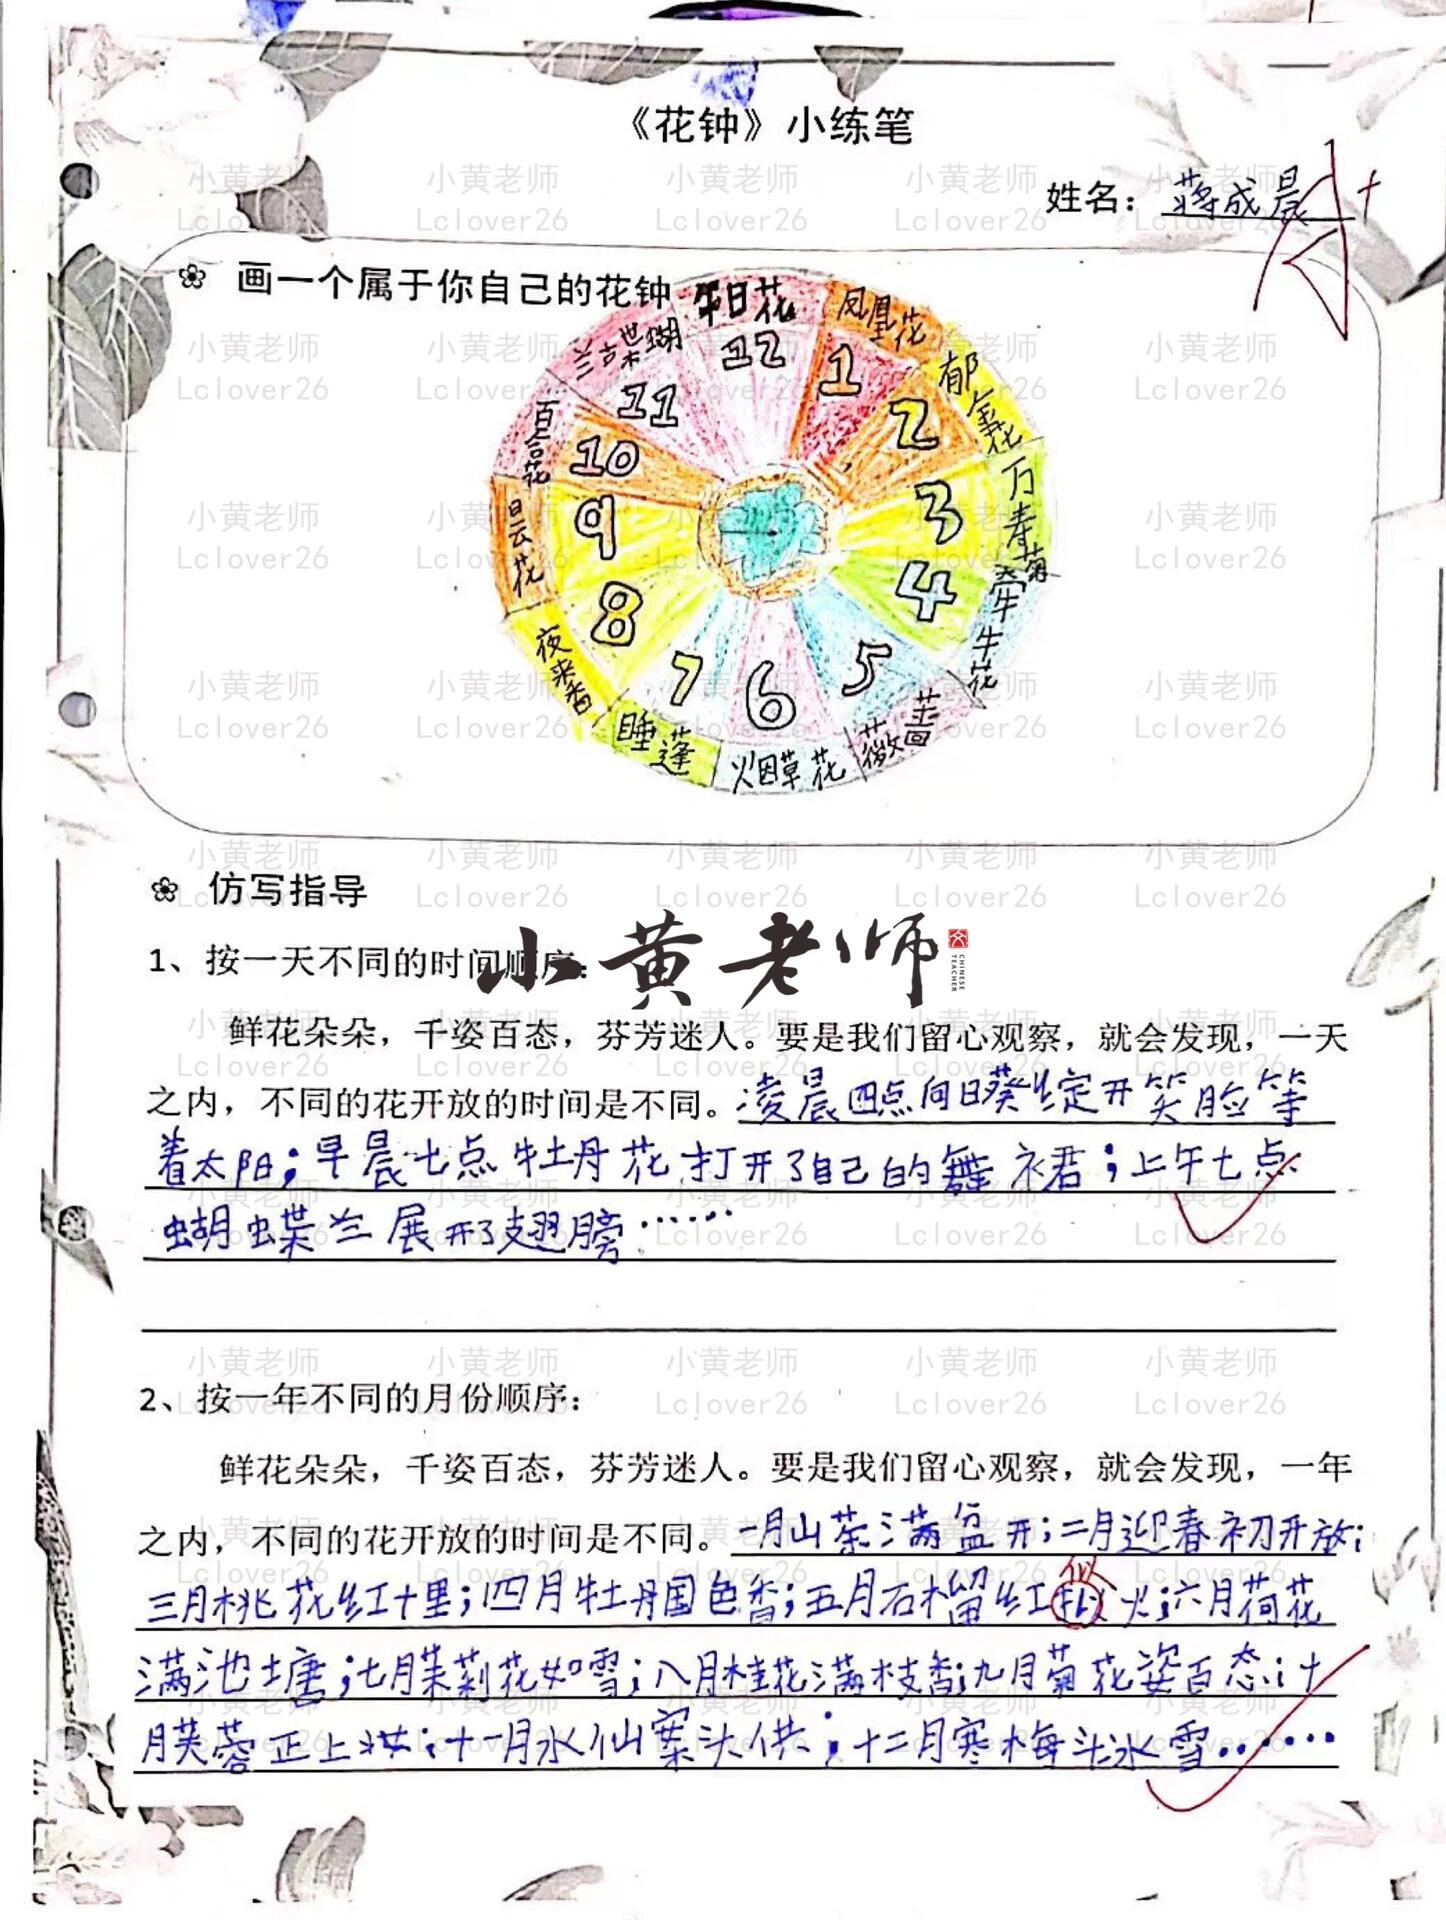 《花钟》小练笔
姓名：蒋成晨
A+
画一个属于你自己的花钟
午日花
12
凤凰花
1
郁金花
2
万寿菊
3
牵牛花
4
蔷薇
5
烟草花
6
睡莲
7
夜来香
8
昙花
9
百合花
10
兰花蝴蝶
11
仿写指导
1、按一天不同的时间顺序：
小黄老师
CHINESE TEACHER
鲜花朵朵，千姿百态，芬芳迷人。要是我们留心观察，就会发现，一天
之内，不同的花开放的时间是不同。凌晨四点向日葵绽开笑脸等
着太阳；早晨七点牡丹花打开了自己的舞裙；上午七点
蝴蝶兰展开了翅膀……
2、按一年不同的月份顺序：
鲜花朵朵，千姿百态，芬芳迷人。要是我们留心观察，就会发现，一年
之内，不同的花开放的时间是不同。一月山茶满盆开；二月迎春初开放；
似
三月桃花红十里；四月牡丹国色香；五月石榴红火；六月荷花
满池塘；七月茉莉花如雪；八月桂花满枝香；九月菊花姿百态；十
月芙蓉正上妆；十一月水仙案头供；十二月寒梅斗冰雪……
小黄老师
Lclover26